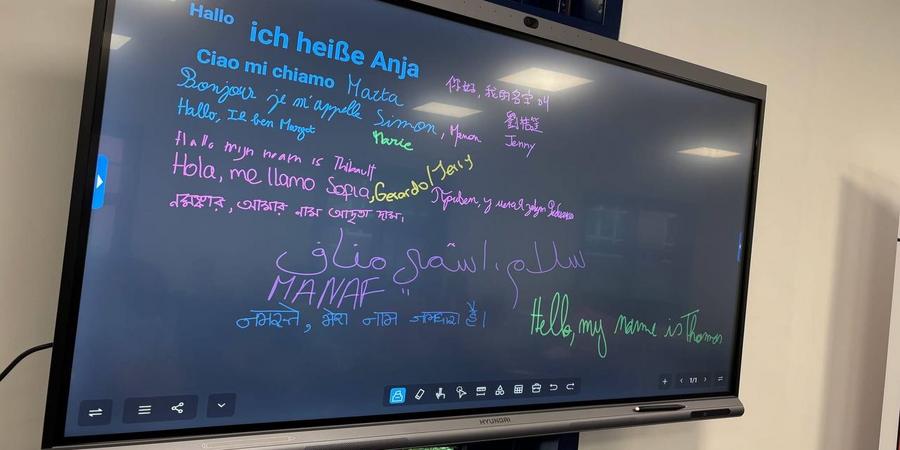 Hallo
ich heiße Anja
Ciao mi chiamo Marta
Bonjour je m'appelle Simon, Manon
Marie
Hallo, Ik ben Margot
Hallo mijn naam is Thibault
Hola, me llamo Sofia, Gerardo/Jerry
你好, 我的名字叫
Jenny
নমস্কার, আমার নাম
سلام، اسمي مناف
MANAF
नमस्ते, मेरा नाम है।
Hello, my name is Thomas
1/1
HYUNDAI